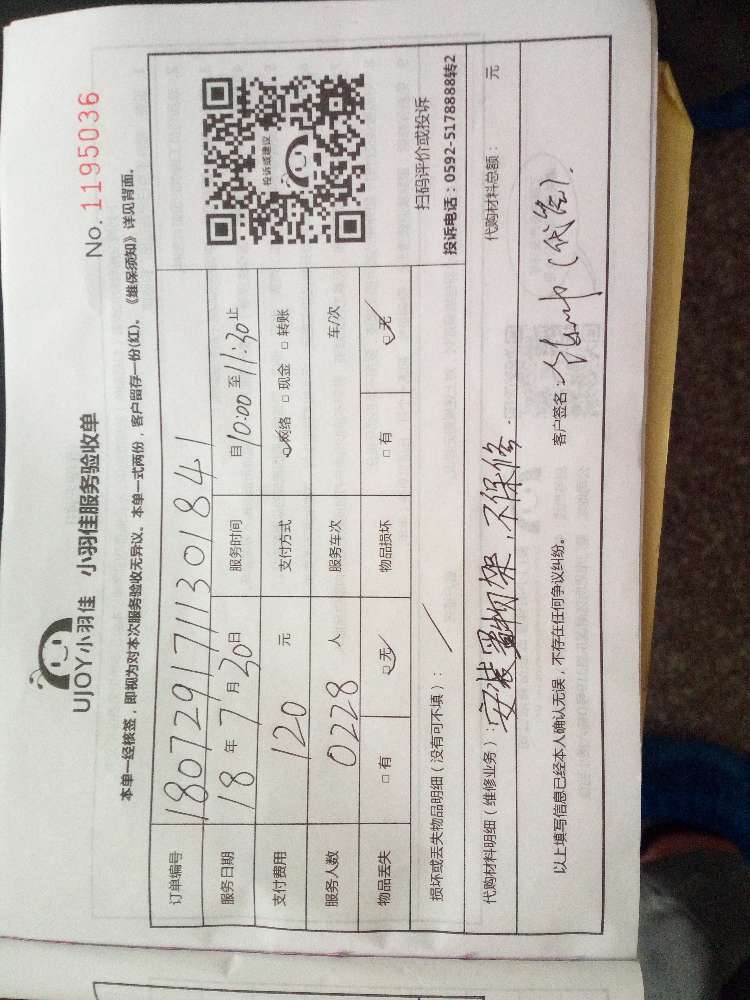 UJOY小羽佳 小羽佳服务验收单
No. 1195036
本单一经核签，即视为对本次服务验收无异议。本单一式两份，客户留存一份(红)。《维保须知》详见背面.
订单编号 180729171130184 1
服务日期 18 年 7 月 30 日 服务时间 自 10:00 至 11:30 止
支付费用 120 元 支付方式 网络 □ 现金 □ 转账
服务人数 0228 人 服务车次 车/次
物品丢失 □ 有 □ 无 物品损坏 □ 有 □ 无
投诉或建议
扫码评价或投诉
投诉电话：0592-5178888转2
损坏或丢失物品明细（没有可不填）：
代购材料明细（维修业务）：安装置物架，不保修. 代购材料总额： 元
以上填写信息已经本人确认无误，不存在任何争议纠纷。 客户签名：